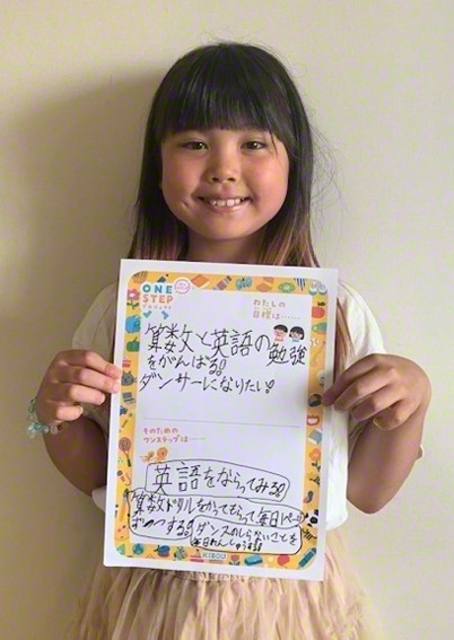 ONE
STEP
プロジェクト
わたしの
目標は……
算数と英語の勉強
をがんばる!
ダンサーになりたい!
そのための
ワンステップは……
英語をならってみる!
算数ドリルをかってもらって毎日1ページ
ずつする!
ダンスのしらないことを
毎日れんしゅうする!
KIBOU